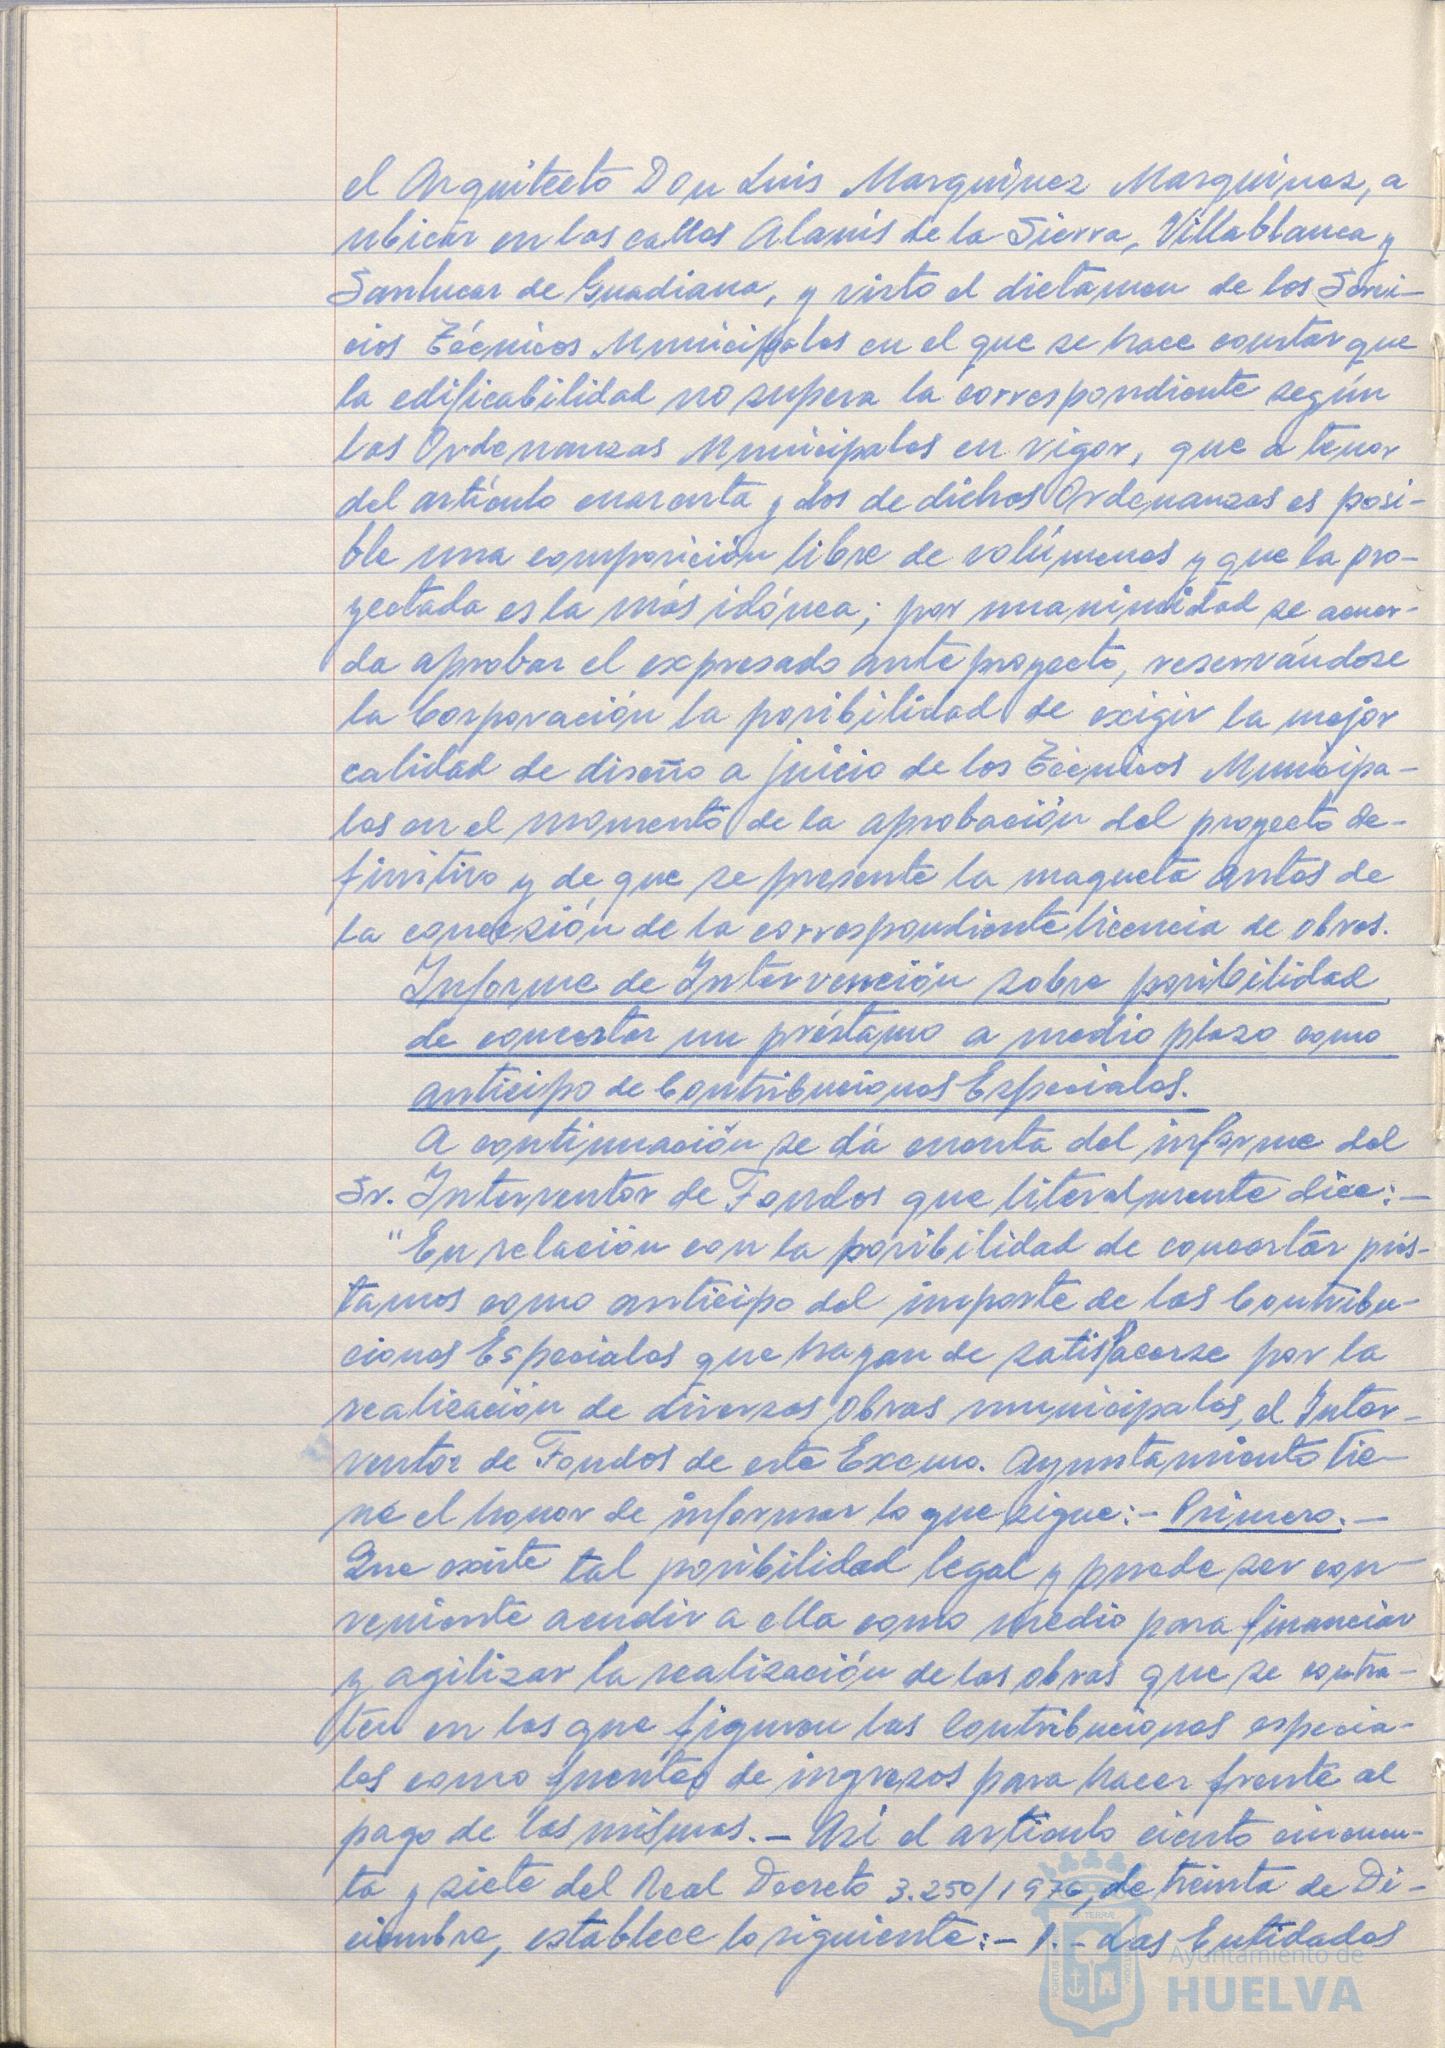 el Arquitecto Don Luis Marquínez Marquínez, a
ubicar en las calles Alanís de la Sierra, Villablanca y
Sanlucar de Guadiana, y visto el dictamen de los Servi-
cios Técnicos Municipales en el que se hace constar que
la edificabilidad no supera la correspondiente según
las Ordenanzas Municipales en vigor, que a tenor
del artículo cuarenta y dos de dichas Ordenanzas es posi-
ble una composición libre de volúmenes y que la pro-
yectada es la más idónea; por unanimidad se acuer-
da aprobar el expresado anteproyecto, reservándose
la Corporación la posibilidad de exigir la mejor
calidad de diseño a juicio de los Técnicos Municipa-
les en el momento de la aprobación del proyecto de-
finitivo y de que se presente la maqueta antes de
la concesión de la correspondiente licencia de obras.
Informe de Intervención sobre posibilidad
de concertar un préstamo a medio plazo como
anticipo de Contribuciones Especiales.
A continuación se dá cuenta del informe del
Sr. Interventor de Fondos que literalmente dice:-
"En relación con la posibilidad de concertar prés-
tamos como anticipo del importe de las Contribu-
ciones Especiales que hayan de satisfacerse por la
realización de diversas Obras municipales, el Inter-
ventor de Fondos de este Excmo. Ayuntamiento tie-
ne el honor de informar lo que sigue:- Primero.-
Que existe tal posibilidad legal y puede ser con-
veniente acudir a ella como medio para financiar
y agilizar la realización de las obras que se contra-
ten en las que figuren las Contribuciones especia-
les como fuentes de ingresos para hacer frente al
pago de las mismas.- Así el artículo ciento cincuen-
ta y siete del Real Decreto 3.250/1976, de treinta de Di-
ciembre, establece lo siguiente:- 1.- Las Entidades
Ayuntamiento de
HUELVA